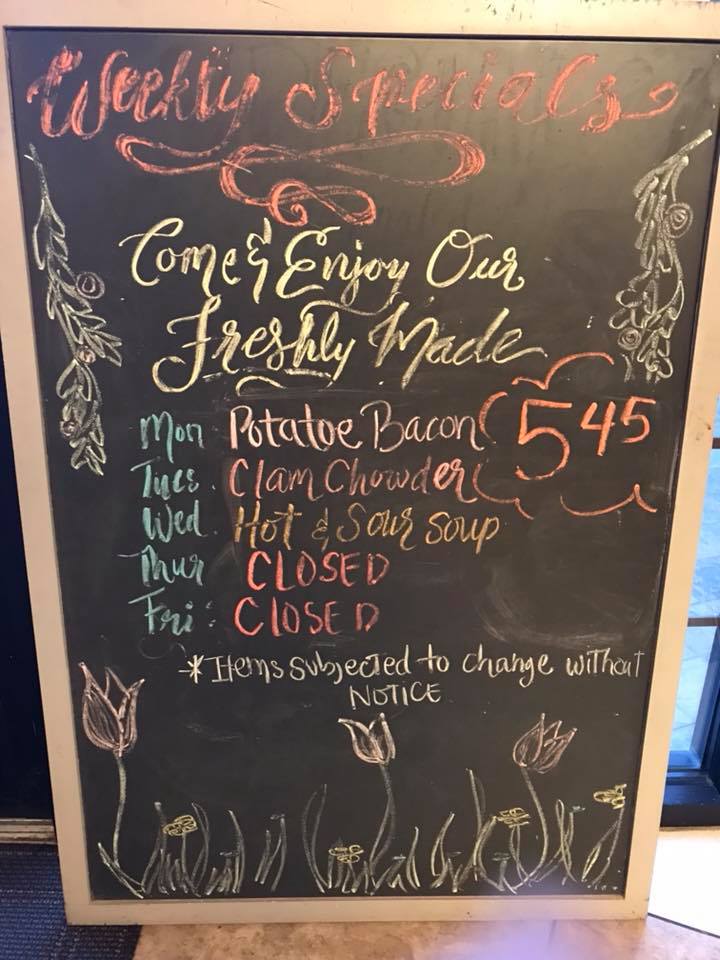 Weekly Specials
Come & Enjoy Our
Freshly Made
Mon Potatoe Bacon 5 45
Tues. Clam Chowder
Wed. Hot & Sour Soup
Thur CLOSED
Fri: CLOSED
* Items subjected to change without
NOTICE